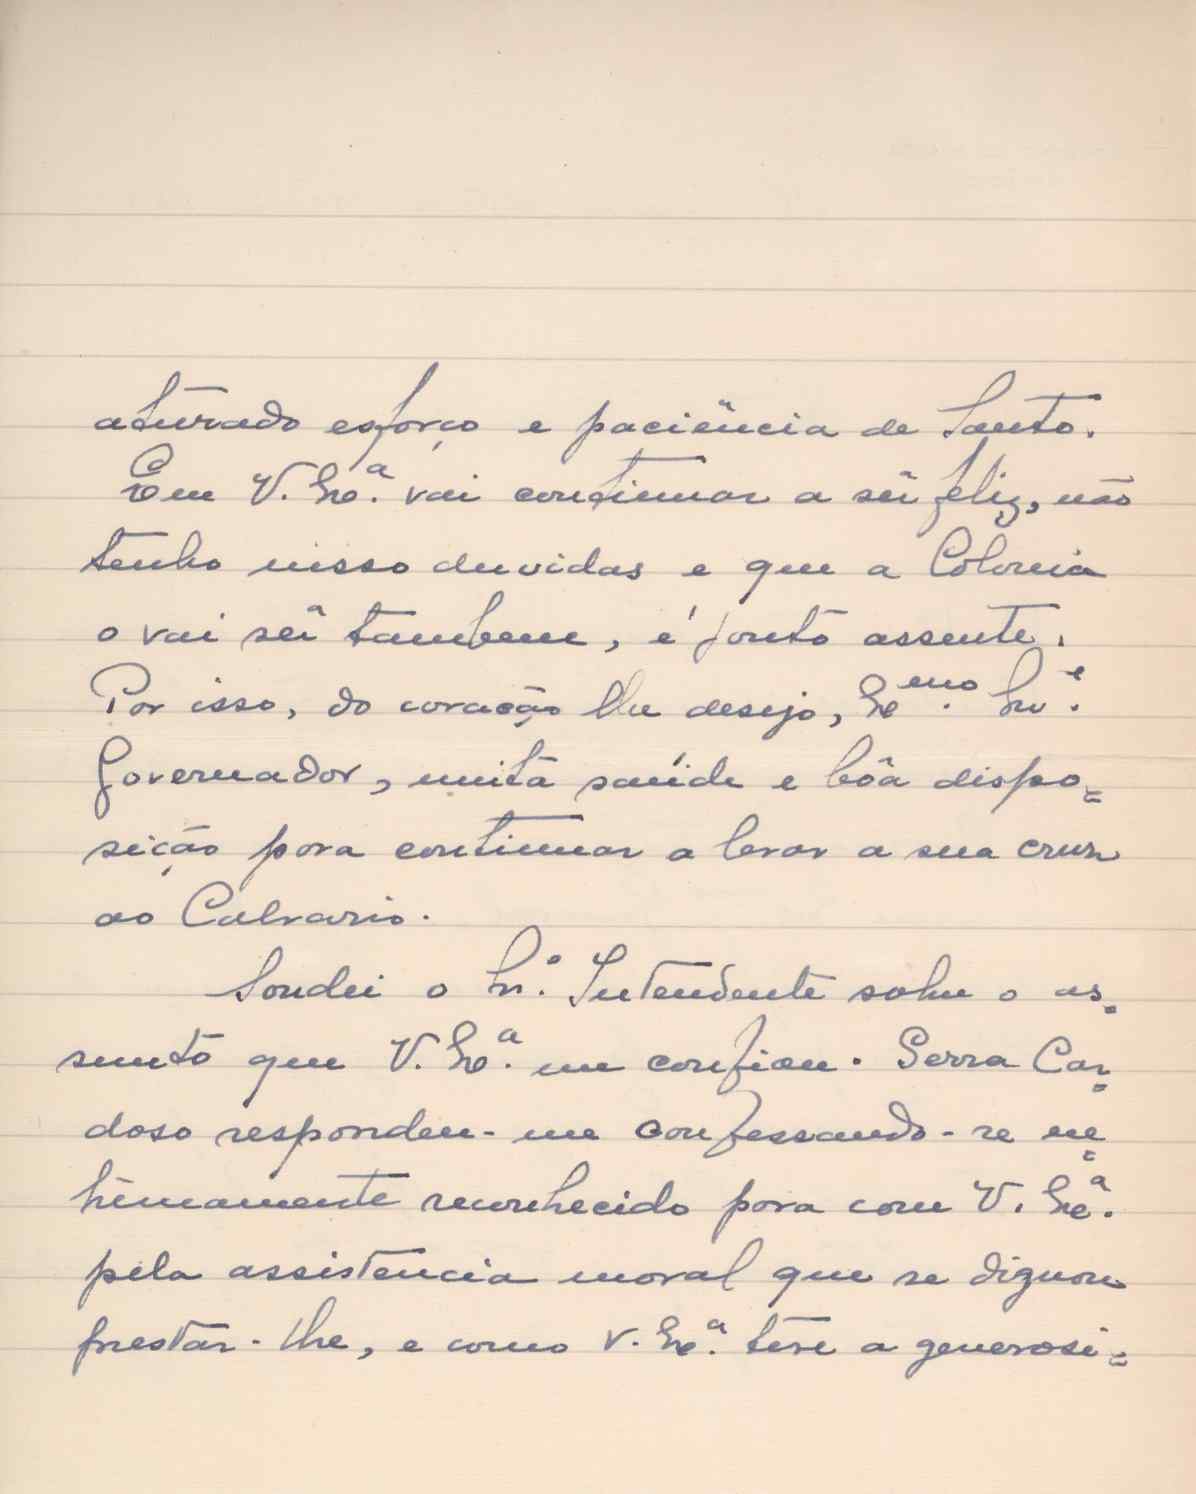 aturado esforço e paciência de Santo.
Em V. Exª. vai continuar a sêr feliz, não
tenho nisso duvidas e que a Colonia
o vai sêr tambem, é ponto assente.
Por isso, do coração lhe desejo, Exmo. Snr.
Governador, muita saúde e bôa dispo=
sição para continuar a levar a sua cruz
ao Calvario.
Sondei o Snr. Intendente sobre o as=
sunto que V. Exª. me confiou. Serra Car=
doso respondeu-me confessando-se in=
timamente reconhecido para com V. Exª.
pela assistencia moral que se dignou
prestar-lhe, e como V. Exª. teve a generosi=